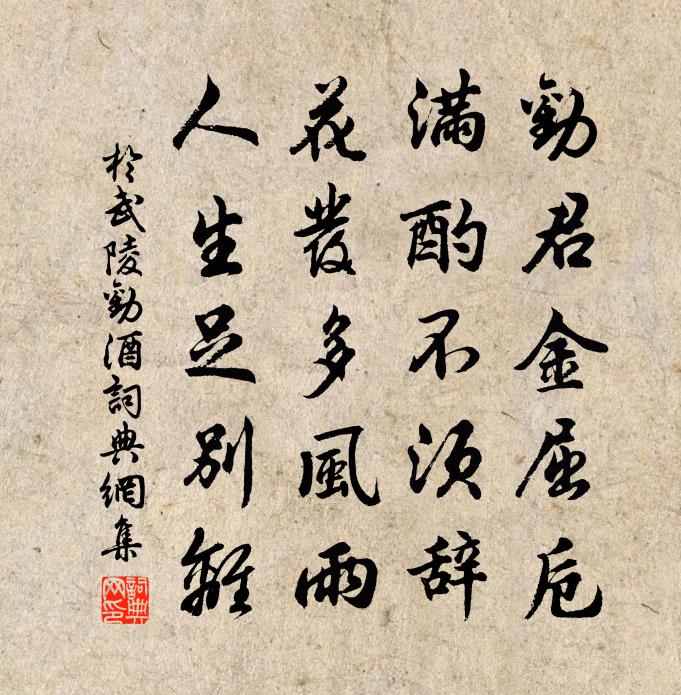 勸君金屈卮
滿酌不須辞
花發多風雨
人生足別離
於武陵勸酒詞典網集
詞典网印